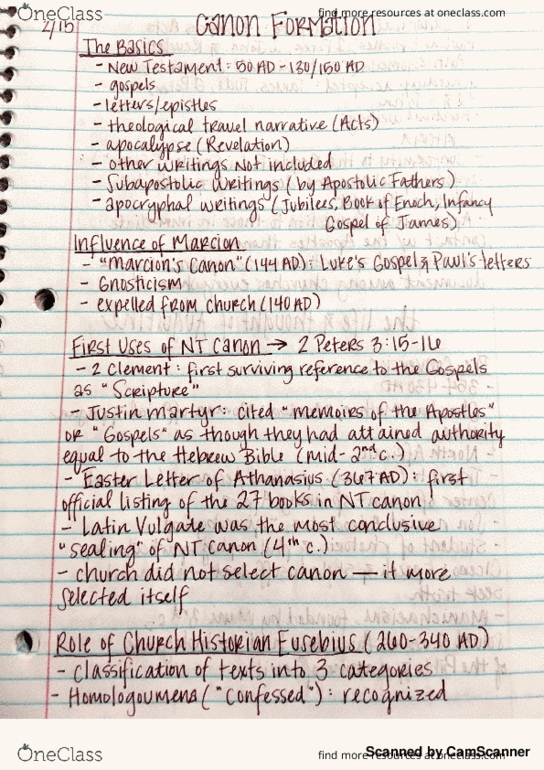 OneClass
find more resources at oneclass.com
2/15
Canon Formation
The Basics
- New Testament: 50 AD - 130/150 AD
- gospels
- letters/epistles
- theological travel narrative (Acts)
- apocalypse (Revelation)
- other writings Not included
- Subapostolic writings (by Apostolic Fathers)
- apocryphal writings (Jubilees, Book of Enoch, Infancy
Gospel of James)
Influence of Marcion
- "Marcion's Canon" (144 AD): Luke's Gospel & Paul's letters
- Gnosticism
- expelled from church (140 AD)
First Uses of NT Canon → 2 Peters 3:15-16
- 2 Clement: first surviving reference to the Gospels
as "Scripture"
- Justin martyr: cited "memoirs of the Apostles"
or "Gospels" as though they had attained authority
equal to the Hebrew Bible (mid-2nd c.)
- Easter Letter of Athanasius (367 AD): first
official listing of the 27 books in NT canon
- Latin Vulgate was the most conclusive
"sealing" of NT Canon (4th c.)
- church did not select canon — it more
selected itself
Role of Church Historian Eusebius (260-340 AD)
- Classification of texts into 3 categories
- Homologoumena ("Confessed"): recognized
OneClass
find more resources at oneclass.com
Scanned by CamScanner